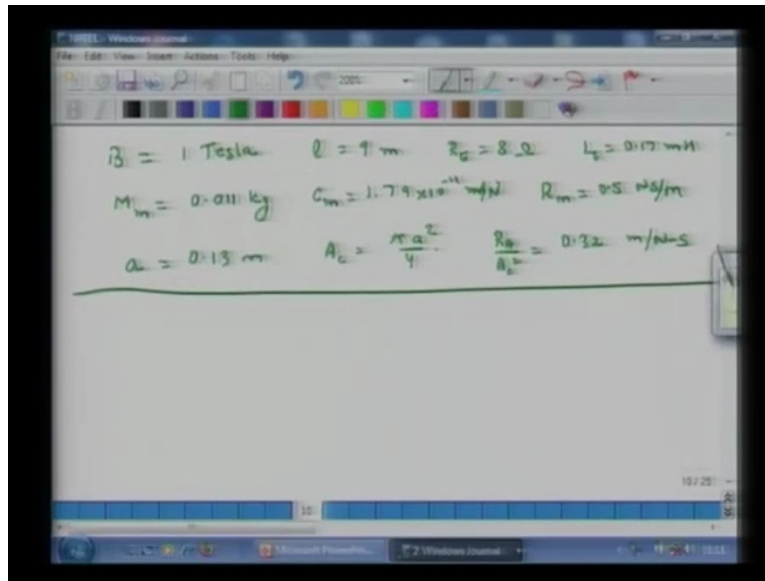 NPTEL - Windows Journal
File Edit View Insert Actions Tools Help
200%
B = 1 Tesla l = 9 m R_E = 8 Ω L_E = 0.17 mH
M_m = 0.011 kg C_m = 1.79 × 10^-4 m/N R_m = 0.5 NS/m
a = 0.13 m A_c = πa²/4 R_A/A_c² = 0.32 m/N-S
10 / 25
10
Microsoft PowerPoin...
2 Windows Journal